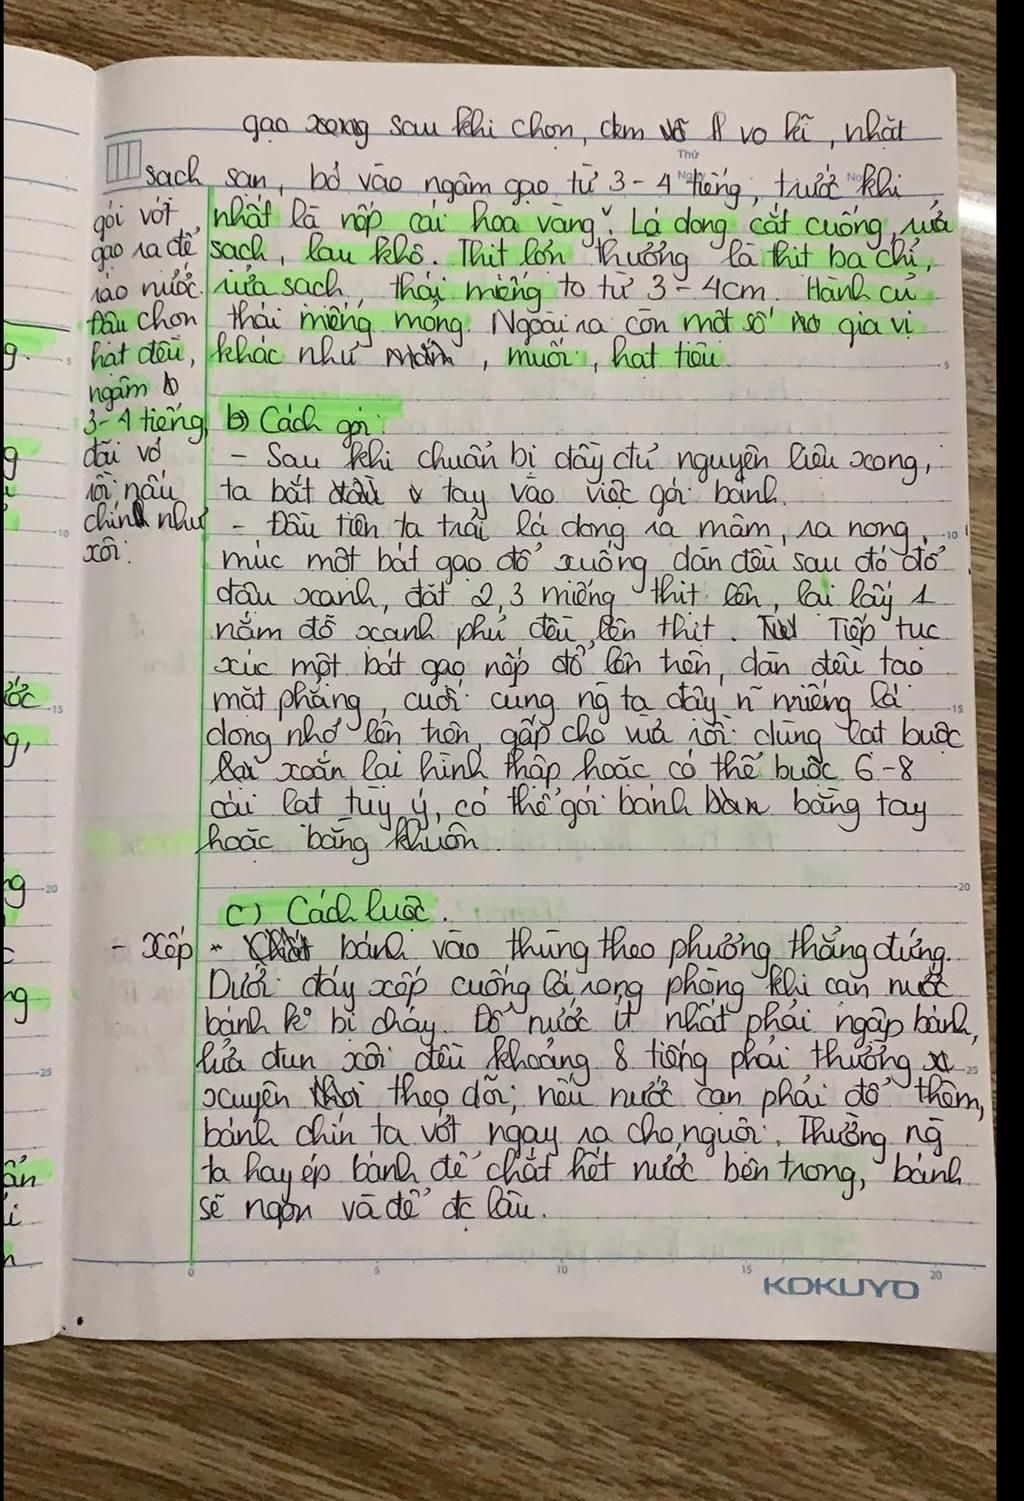 gạo xong sau khi chọn, đem vo kĩ, nhặt
Thứ
sạch sạn, bỏ vào ngâm gạo từ 3-4 tiếng, trước khi
gói vớt
gạo ra để
ráo nước.
Đậu chọn
hạt đều,
ngâm
3-4 tiếng,
đãi vỏ
rồi nấu
chín như
xôi.
nhất là nếp cái hoa vàng. Lá dong cắt cuống, rửa
sạch, lau khô. Thịt lợn thường là thịt ba chỉ,
rửa sạch, thái miếng to từ 3-4cm. Hành củ
thái miếng mỏng. Ngoài ra còn một số gia vị
khác như mắm, muối, hạt tiêu.
b) Cách gói:
- Sau khi chuẩn bị đầy đủ nguyên liệu xong,
ta bắt tay vào việc gói bánh.
- Đầu tiên ta trải lá dong ra mâm, ra nong,
múc một bát gạo đổ xuống dàn đều sau đó đổ
đậu xanh, đặt 2,3 miếng thịt lên, lại lấy 1
nắm đỗ xanh phủ đều lên thịt. Tiếp tục
xúc một bát gạo nếp đổ lên trên, dàn đều tạo
mặt phẳng, cuối cùng ng ta đậy n~ miếng lá
dong nhỏ lên trên, gấp cho vừa rồi dùng lạt buộc
lại xoắn lại hình thập hoặc có thể buộc 6-8
cái lạt tùy ý, có thể gói bánh bằng tay
hoặc bằng khuôn.
c) Cách luộc.
- Xếp bánh vào thùng theo phương thẳng đứng.
Dưới đáy xếp cuống lá rong phòng khi cạn nước
bánh k° bị cháy. Đổ nước ít nhất phải ngập bánh,
lửa đun sôi đều khoảng 8 tiếng phải thường
xuyên theo dõi, nếu nước cạn phải đổ thêm,
bánh chín ta vớt ngay ra cho nguội. Thường ng
ta hay ép bánh để chắt hết nước bên trong, bánh
sẽ ngon và để đc lâu.
0 5 10 15 20
KOKUYO